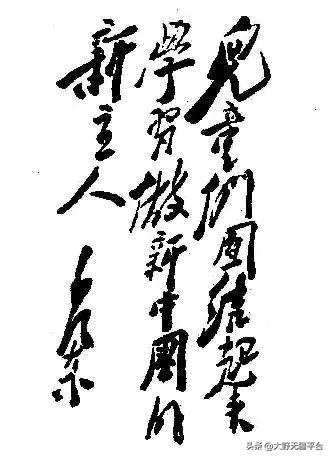 兒童們團結起来
學習做新中國的
新主人
毛泽东
头条 @大野无疆平台